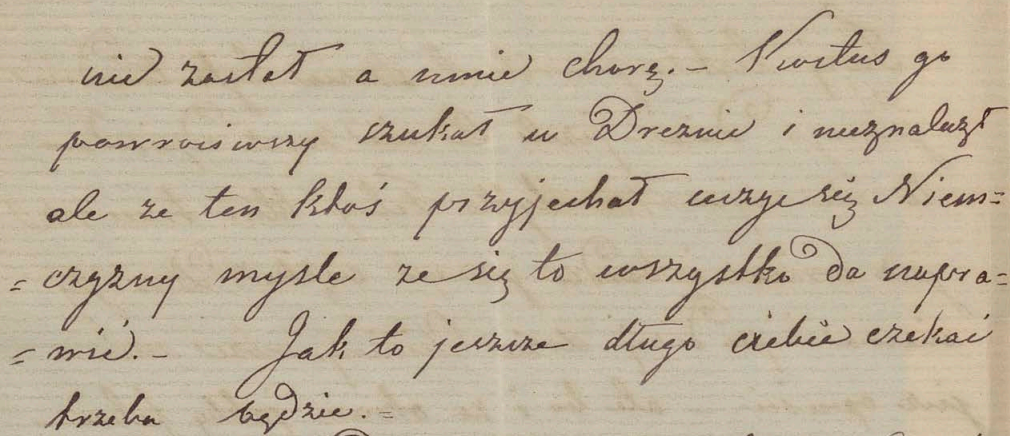 nie zastał a mnie chorą.- Kostuś go
powróciwszy szukał w Dreznie i nieznalazł
ale ze ten ktoś przyjechał uczyć się Niem=
=czyzny mysle ze się to wszystko da napra=
=wić.- Jak to jeszcze długo ciebie czekać
trzeba będzie.=